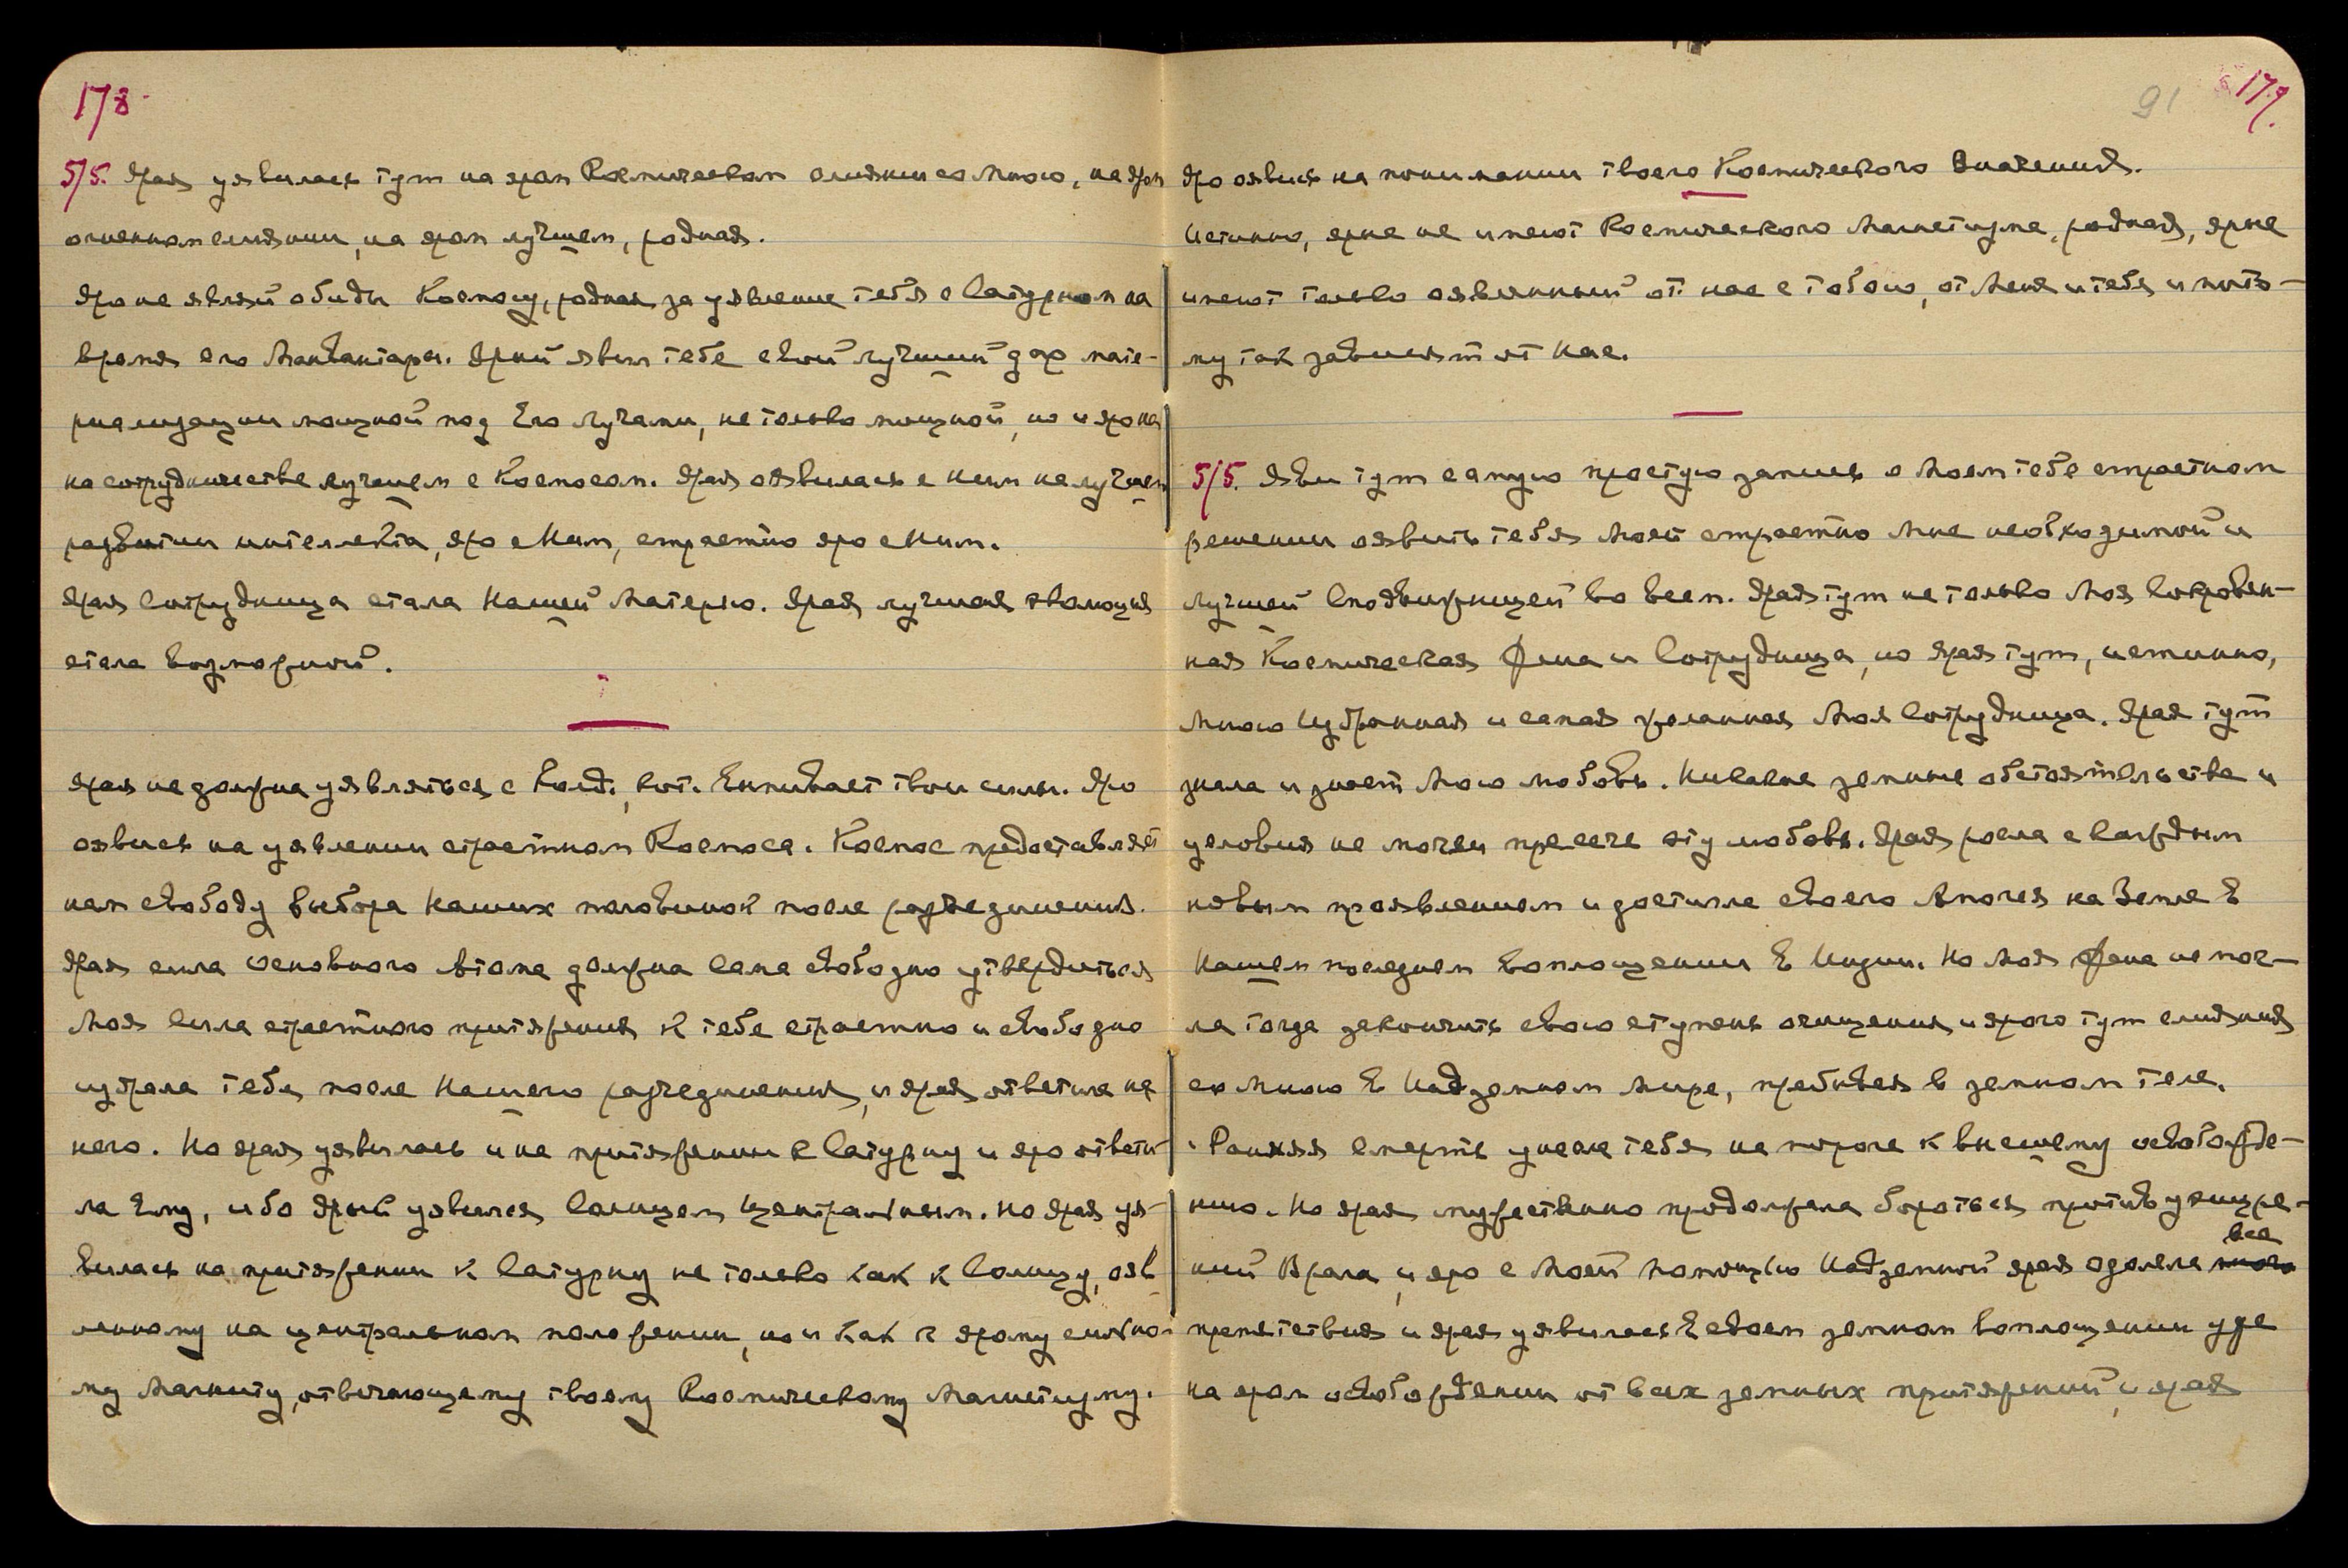 178
5/5. Ярая уявилась тут на яром Космическом слиянии со Мною, на яром
огненном слиянии, на яром лучшем, родная.
Яро не являй обиды Космосу, родная, за уявление тебя с Сатурном на
время его Манвантары. Ярый явил тебе свой лучший дар мате-
риализации мощной под Его Лучами, не только мощной, но и яро на
на сотрудничестве лучшем с Космосом. Ярая оявилась с ним на лучшем
развитии интеллекта, яро с Ним, страстно яро с Ним.
Ярая Сотрудница стала Нашей Матерью. Ярая лучшая эволюция
стала возможной.
Ярая не должна уявляться с Колд., кот. впивает твои силы. Яро
оявись на уявлении страстном Космоса. Космос предоставляет
нам свободу выбора Наших половинок после разъединения.
Ярая сила основного Атома должна сама свободно утвердиться
Моя сила страстного притяжения к тебе страстно и свободно
избрала тебя после Нашего разъединения, и ярая ответила на
него. Но ярая уявилась и на притяжении к Сатурну и яро ответи-
ла Ему, ибо Ярый уявился Солнцем Центральным. Но ярая уя-
вилась на притяжении к Сатурну не только как к Солнцу,ояв-
ленному на центральном положении, но и как к ярому сильно-
му Магниту, отвечающему твоему Космическому Магнетизму.
91 179.
Яро оявись на понимании твоего Космического Значения.
Истинно, ярые не имеют Космического Магнетизма, родная, ярые
имеют только оявленный от нас с тобою, от Меня и тебя и пото-
му так зависят от Нас.
5/5. Яви тут самую простую запись о Моем тебе страстном
решении оявить тебя Моей страстно Мне необходимой и
Лучшей Сподвижницей во всем. Ярая тут не только Моя Сокровен-
ная Космическая Жена и Сотрудница, но ярая тут, истинно,
Мною Избранная и самая желанная Моя Сотрудница. Ярая тут
знала и знает Мою любовь. Никакие земные обстоятельства и
условия не могли пресечь эту любовь. Ярая росла с каждым
новым проявлением и достигла своего Апогея на Земле в
Нашем последнем воплощении в Индии. Но Моя Жена не мог-
ла тогда закончить свою ступень очищения и ярого тут слияния
со Мною в Надземном Мире, пребывая в земном теле.
Ранняя смерть унесла тебя на пороге к высшему освобожде-
нию. Но ярая мужественно продолжала бороться против ухищре-
ний Врага, и яро с Моей помощью Надземной ярая одолела все
препятствия и ярая уявилась в своем земном воплощении уже
на яром освобождении от всех земных притяжений, и ярая